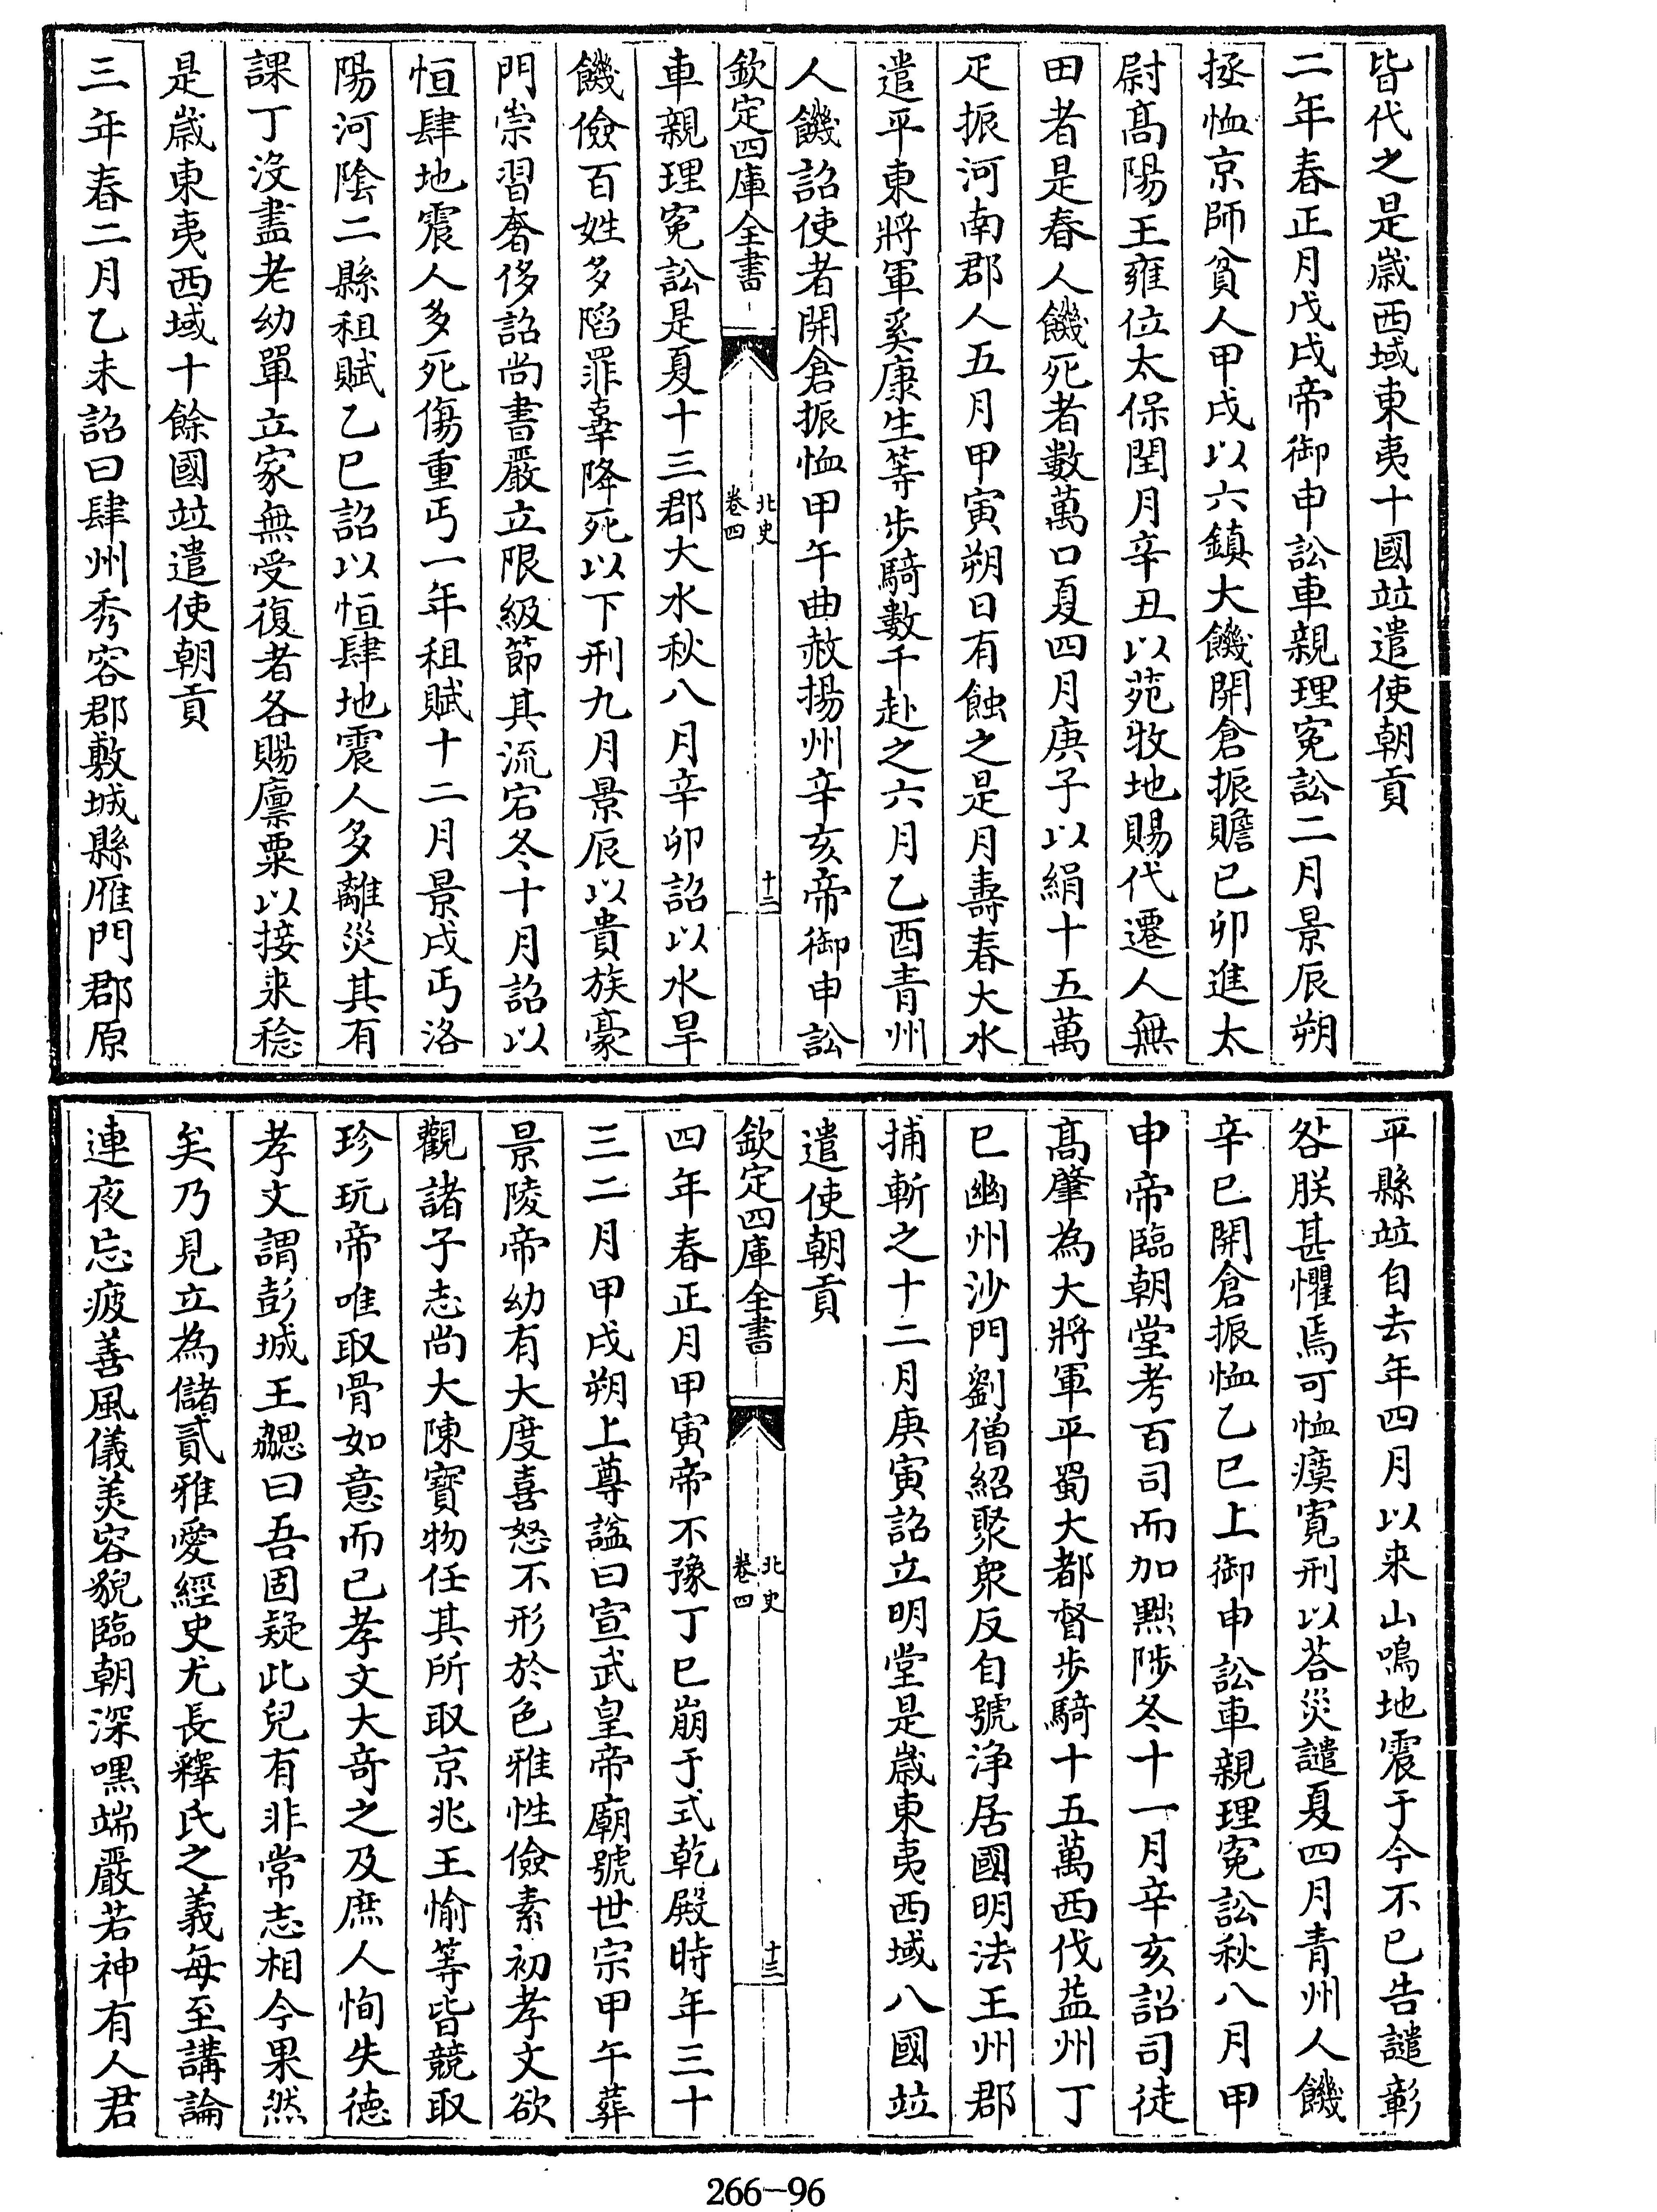 皆代之是嵗西域東夷十國竝遣使朝貢
二年春正月戊戌帝御申訟車親理寃訟二月景辰朔
拯恤京師貧人甲戌以六鎮大饑開倉振贍已卯進太
尉髙陽王雍位太保閏月辛丑以苑牧地賜代遷人無
田者是春人饑死者數萬口夏四月庚子以絹十五萬
疋振河南郡人五月甲寅朔日有蝕之是月壽春大水
遣平東將軍奚康生等步騎數千赴之六月乙酉青州
人饑詔使者開倉振恤甲午曲赦揚州辛亥帝御申訟
欽定四庫全書
北史
卷四
十二
車親理寃訟是夏十三郡大水秋八月辛卯詔以水旱
饑儉百姓多陷罪辜降死以下刑九月景辰以貴族豪
門崇習奢侈詔尚書嚴立限級節其流宕冬十月詔以
恒肆地震人多死傷重丐一年租賦十二月景戌丐洛
陽河隂二縣租賦乙巳詔以恒肆地震人多離災其有
課丁沒盡老幼單立家無受復者各賜廪粟以接来稔
是嵗東夷西域十餘國竝遣使朝貢
三年春二月乙未詔曰肆州秀容郡敷城縣雁門郡原
平縣竝自去年四月以来山鳴地震于今不已告譴彰
咎朕甚懼焉可恤瘼寛刑以荅災譴夏四月青州人饑
辛巳開倉振恤乙巳上御申訟車親理寃訟秋八月甲
申帝臨朝堂考百司而加黜陟冬十一月辛亥詔司徒
髙肇為大將軍平蜀大都督步騎十五萬西伐益州丁
巳幽州沙門劉僧紹聚衆反自號浄居國明法王州郡
捕斬之十二月庚寅詔立明堂是嵗東夷西域八國竝
遣使朝貢
欽定四庫全書
北史
卷四
十三
四年春正月甲寅帝不豫丁巳崩于式乾殿時年三十
三二月甲戌朔上尊諡曰宣武皇帝廟號世宗甲午葬
景陵帝幼有大度喜怒不形於色雅性儉素初孝文欲
觀諸子志尚大陳寳物任其所取京兆王愉等皆競取
珍玩帝唯取骨如意而已孝文大奇之及庶人恂失徳
孝文謂彭城王勰曰吾固疑此兒有非常志相今果然
矣乃見立為儲貳雅愛經史尤長釋氏之義每至講論
連夜忘疲善風儀美容貌臨朝深嘿端嚴若神有人君
266-96